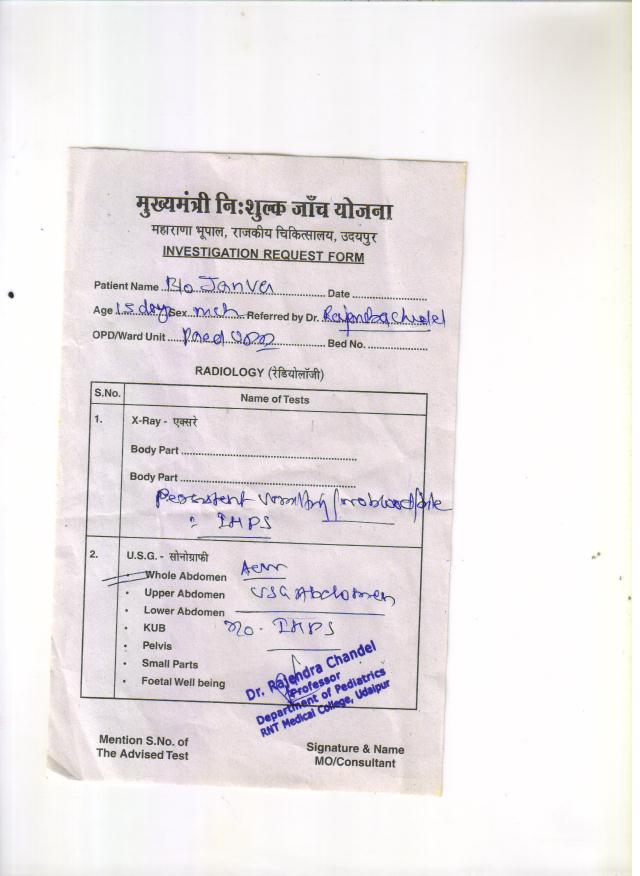 मुख्यमंत्री निःशुल्क जाँच योजना
महाराणा भूपाल, राजकीय चिकित्सालय, उदयपुर
INVESTIGATION REQUEST FORM
Patient Name B/o Janver Date
Age 15 day Sex mch Referred by Dr. Rajendra Chandel
OPD/Ward Unit Paed OPD Bed No.
RADIOLOGY (रेडियोलॉजी)
S.No. Name of Tests
1. X-Ray - एक्सरे
Body Part
Body Part
Persistent vomiting
IHPS
2. U.S.G. - सोनोग्राफी
• Whole Abdomen
• Upper Abdomen USG Abdomen
• Lower Abdomen
• KUB IHPS
• Pelvis
• Small Parts
• Foetal Well being
Dr. Rajendra Chandel
Professor
Department of Pediatrics
RNT Medical College, Udaipur
Mention S.No. of
The Advised Test
Signature & Name
MO/Consultant